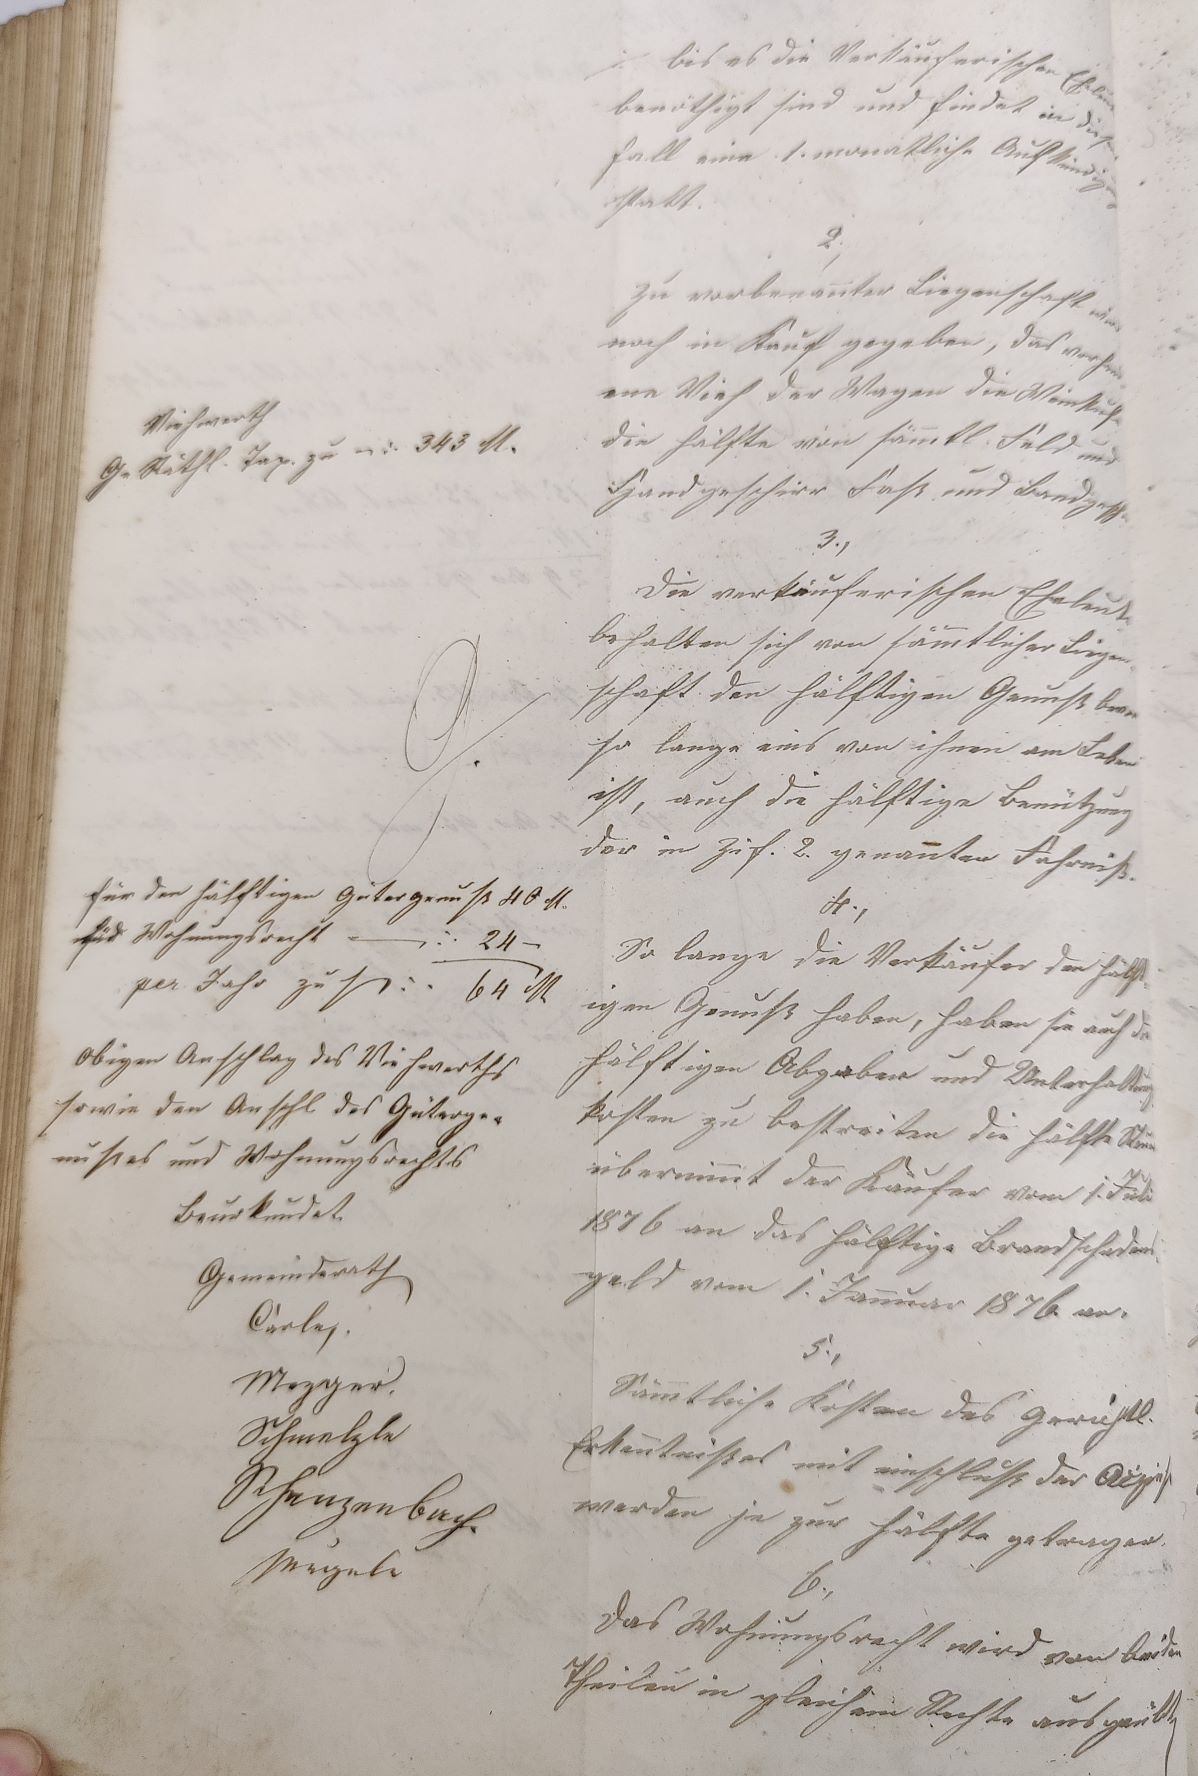 bis es die Verkäuferischen Eheleute
benöthigt sind und findet in diesem
Fall eine 1. monatliche Aufkündigung
statt.
2.,
Zu vorbenannter Liegenschaft wird
noch in Kauf gegeben, das vorhand
ene Vieh der Wagen die
die Hälfte von sämmtl. Feld und
Handgeschirr Faß und Bandgesch
3.,
Die verkäuferischen Eheleute
behalten sich von sämmtlicher Liegen-
schaft den hälftigen Genuß bevor
so lange eins von ihnen am Leben
ist, auch die hälftige Benützung
der in Zif. 2. genannten Fahrniß.
4.,
So lange die Verkäufer den hälft-
igen Genuß haben, haben sie auch die
hälftigen Abgaben und Unterhaltungs
kosten zu bestreiten die Hälfte Steuer
übernimmt der Käufer vom 1. Juli
1876 an das hälftige Brandschadens
geld vom 1. Januar 1876 an.
5.,
Sämmtliche Kosten des gerichtl.
Erkenntnißes mit einschluß der Accise
werden je zur Hälfte getragen.
6.,
Das Wohnungsrecht wird von beiden
Theilen in gleichem Rechte ausgeübt
Viehwerth
G. Räthl. Tax. zu 343 M.
für den hälftigen Gütergenuß 40 M.
für Wohnungsrecht 24 —
per Jahr zus. 64 M
Obigen Anschlag des Viehwerths
sowie den Anschl des Güterge-
nußes und Wohnungsrechts
Beurkundet
Gemeinderath
Carle,.
Mezger.
Schmelzle
Scheuzenbach.